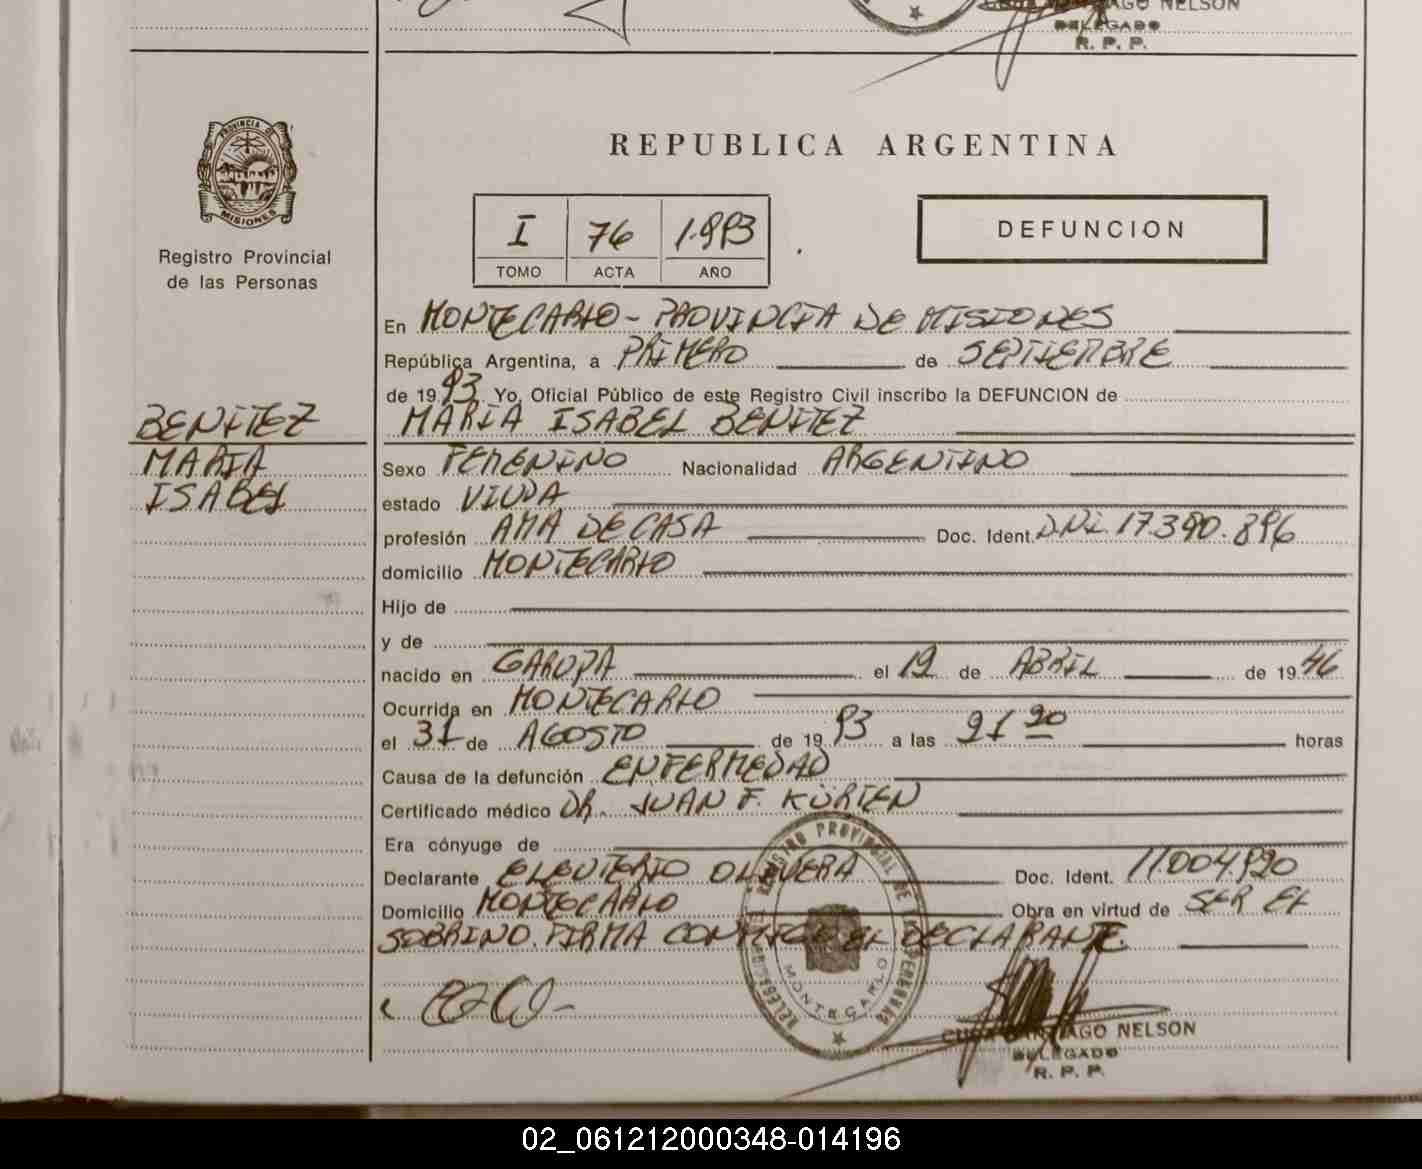 NELSON
DELEGADO
R. P. P.
PROVINCIA DE
MISIONES
Registro Provincial
de las Personas
REPUBLICA ARGENTINA
I 76 1.993
TOMO ACTA AÑO
DEFUNCION
En MONTECARLO - PROVINCIA DE MISIONES
República Argentina, a PRIMERO de SEPTIEMBRE
de 19 93 Yo, Oficial Público de este Registro Civil inscribo la DEFUNCION de
BENITEZ MARIA ISABEL BENITEZ
MARIA Sexo FEMENINO Nacionalidad ARGENTINO
ISABEL estado VIUDA
profesión AMA DE CASA Doc. Ident. D.N.I. 17.390.896
domicilio MONTECARLO
Hijo de
y de
nacido en GARUPA el 19 de ABRIL de 19 46
Ocurrida en MONTECARLO
el 31 de AGOSTO de 19 93 a las 21 20 horas
Causa de la defunción ENFERMEDAD
Certificado médico DR. JUAN F. KÜRTEN
Era cónyuge de
Declarante ELEUTERIO OLIVERA Doc. Ident. 11.004.920
Domicilio MONTECARLO Obra en virtud de SER EL
SOBRINO. FIRMA CONMIGO EL DECLARANTE.
REGISTRO PROVINCIAL DE LAS PERSONAS
MONTECARLO
SANTIAGO NELSON
DELEGADO
R. P. P.
02_061212000348-014196